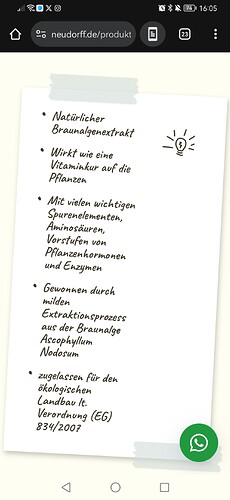 16:05
neudorff.de/produkt
23
• Natürlicher
Braunalgenextrakt
• Wirkt wie eine
Vitaminkur auf die
Pflanzen
• Mit vielen wichtigen
Spurenelementen,
Aminosäuren,
Vorstufen von
Pflanzenhormonen
und Enzymen
• Gewonnen durch
milden
Extraktionsprozess
aus der Braunalge
Ascophyllum
Nodosum
• zugelassen für den
ökologischen
Landbau lt.
Verordnung (EG)
834/2007